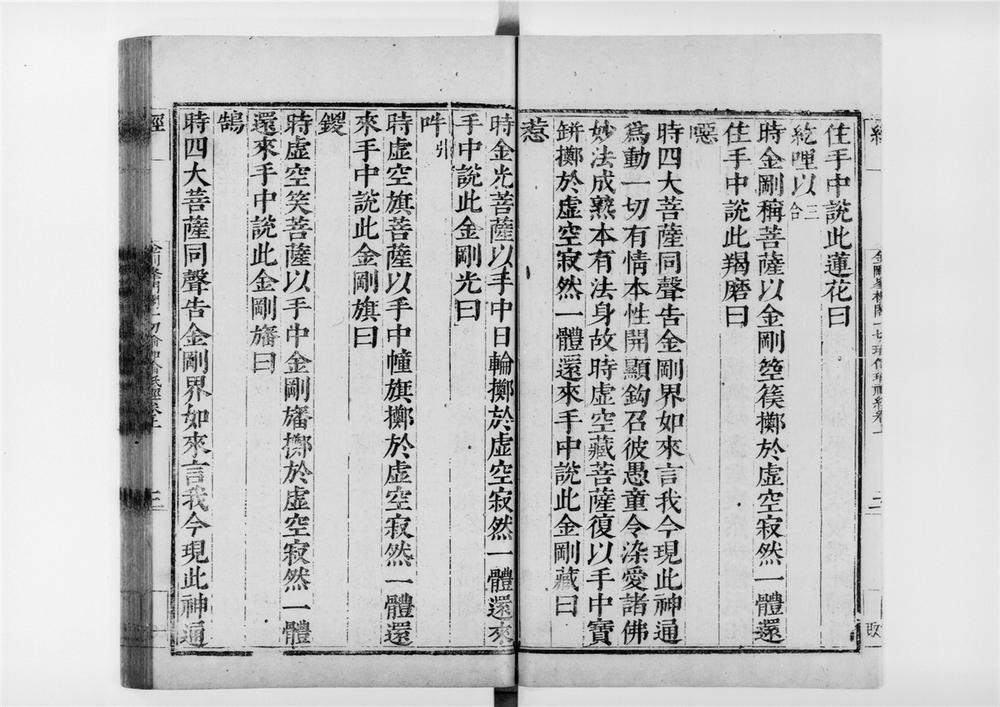 住手中說此蓮花曰
紇哩以二合
時金剛稱菩薩以金剛箜篌擲於虛空寂然一體還
住手中說此羯磨曰
噁
時四大菩薩同聲告金剛界如來言我今現此神通
爲動一切有情本性開顯鈎召彼愚童令染愛諸佛
妙法成熟本有法身故時虛空藏菩薩復以手中寶
缾擲於虛空寂然一體還來手中說此金剛藏曰
惹
時金光菩薩以手中日輪擲於虛空寂然一體還來
手中說此金剛光曰
吽引
時虛空旗菩薩以手中幢旗擲於虛空寂然一體還
來手中說此金剛旗曰
鑁
時虛空笑菩薩以手中金剛旛擲於虛空寂然一體
還來手中說此金剛旛曰
鵠
時四大菩薩同聲告金剛界如來言我今現此神通
經
三